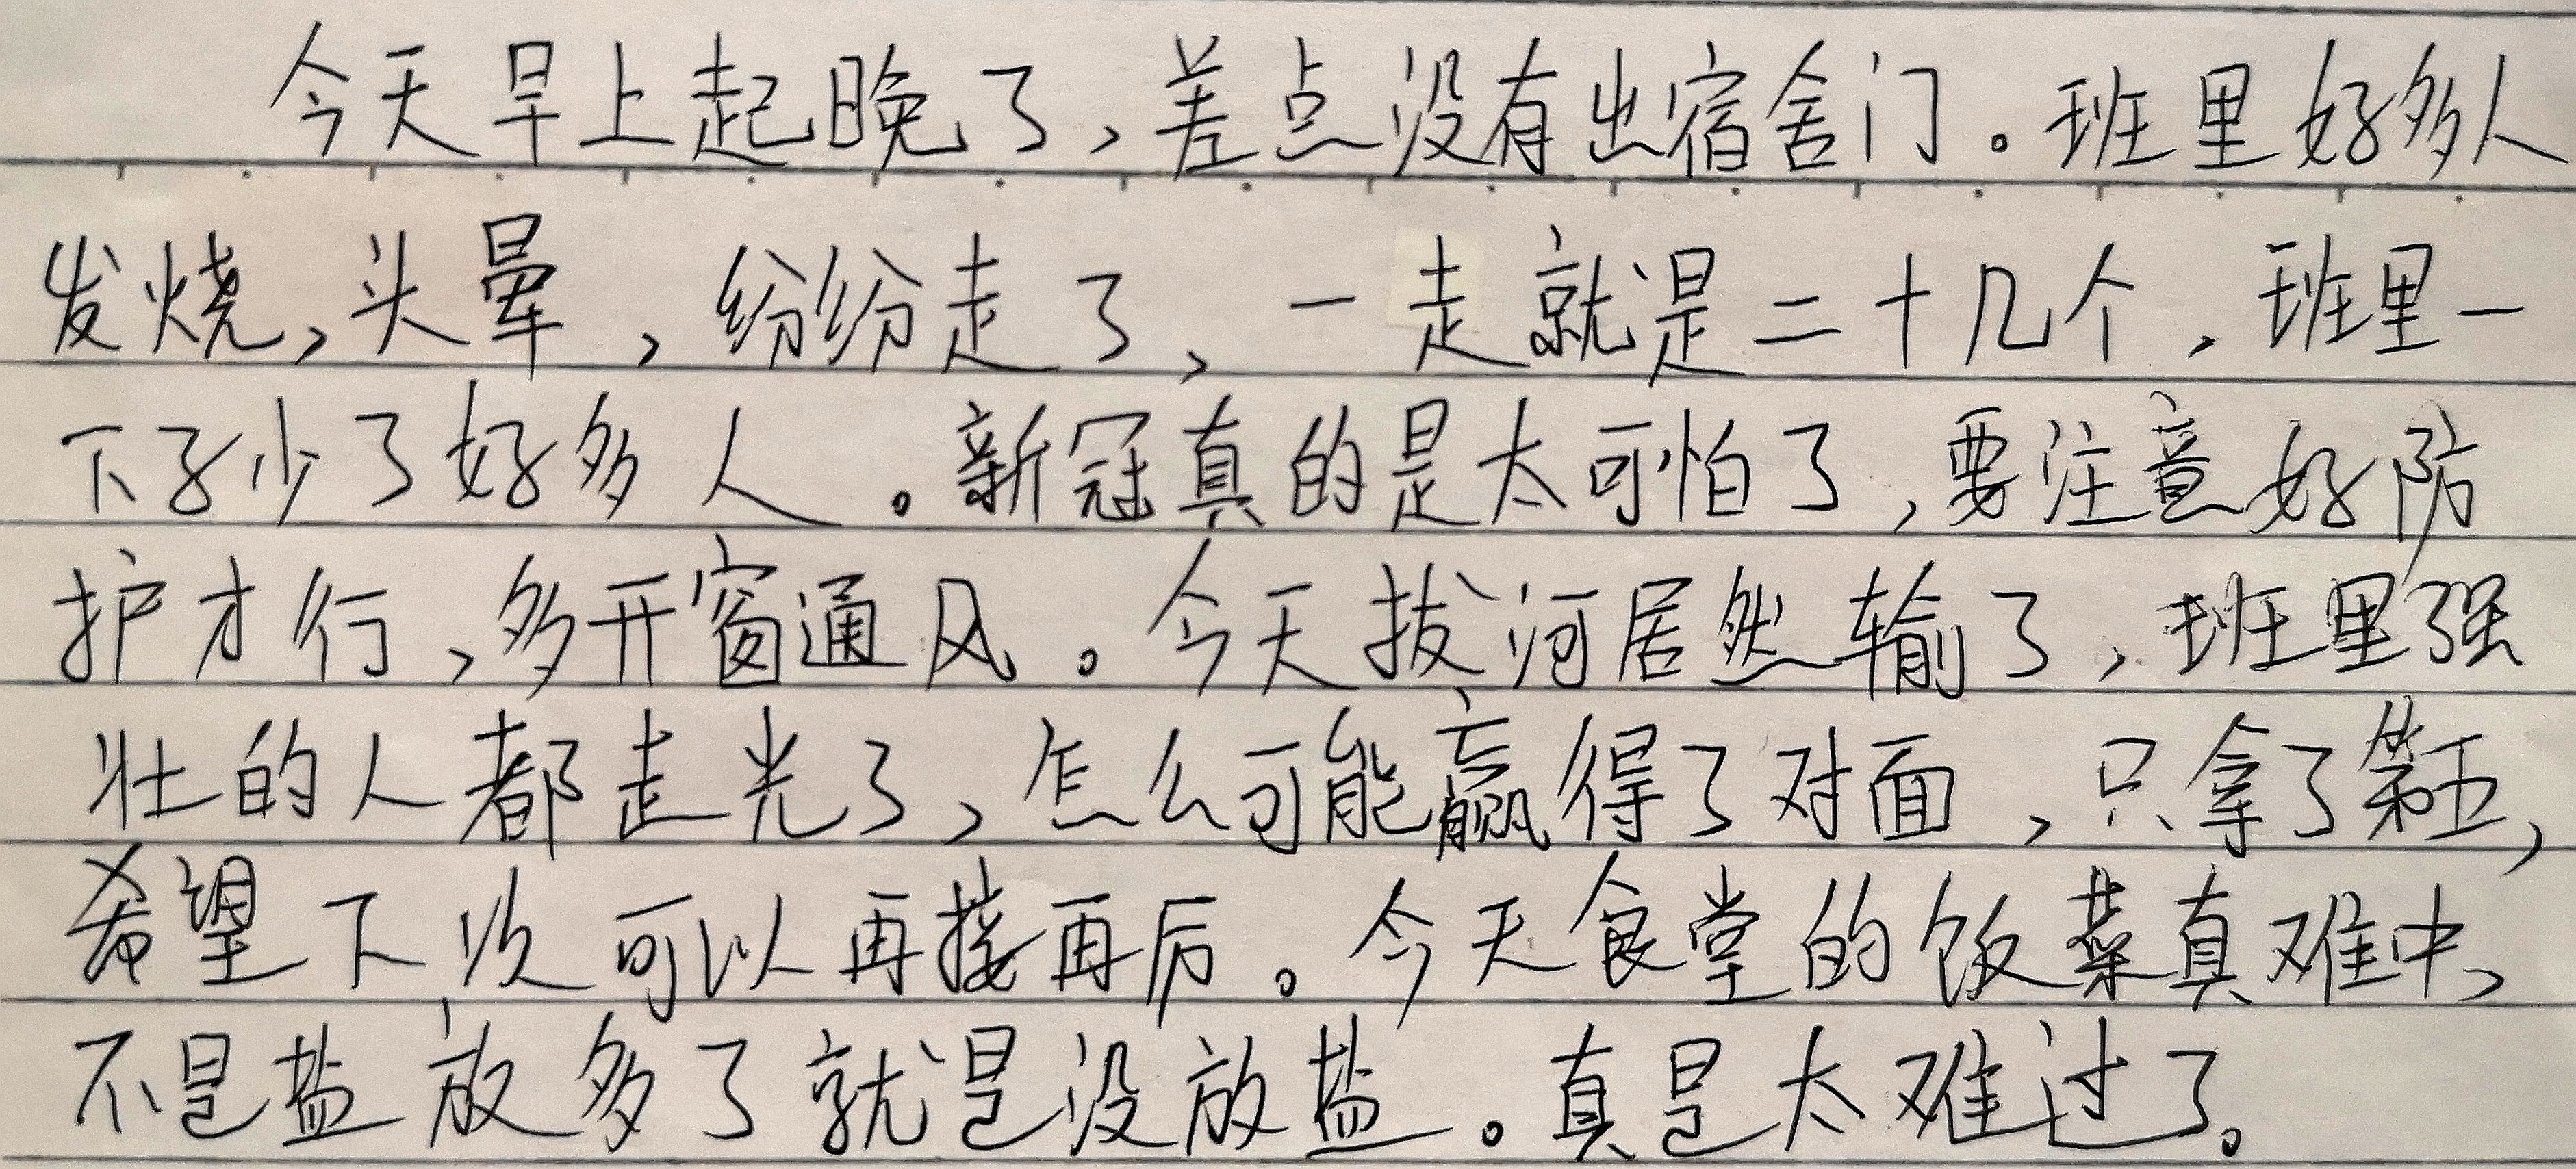 今天早上起晚了,差点没有出宿舍门。班里好多人
发烧,头晕,纷纷走了,一走就是二十几个,班里一
下子少了好多人。新冠真的是太可怕了,要注意好防
护才行,多开窗通风。今天拔河居然输了,班里强
壮的人都走光了,怎么可能赢得了对面,只拿了第五,
希望下次可以再接再后。今天食堂的饭菜真难中,
不是盐放多了就是没放盐。真是太难过了。